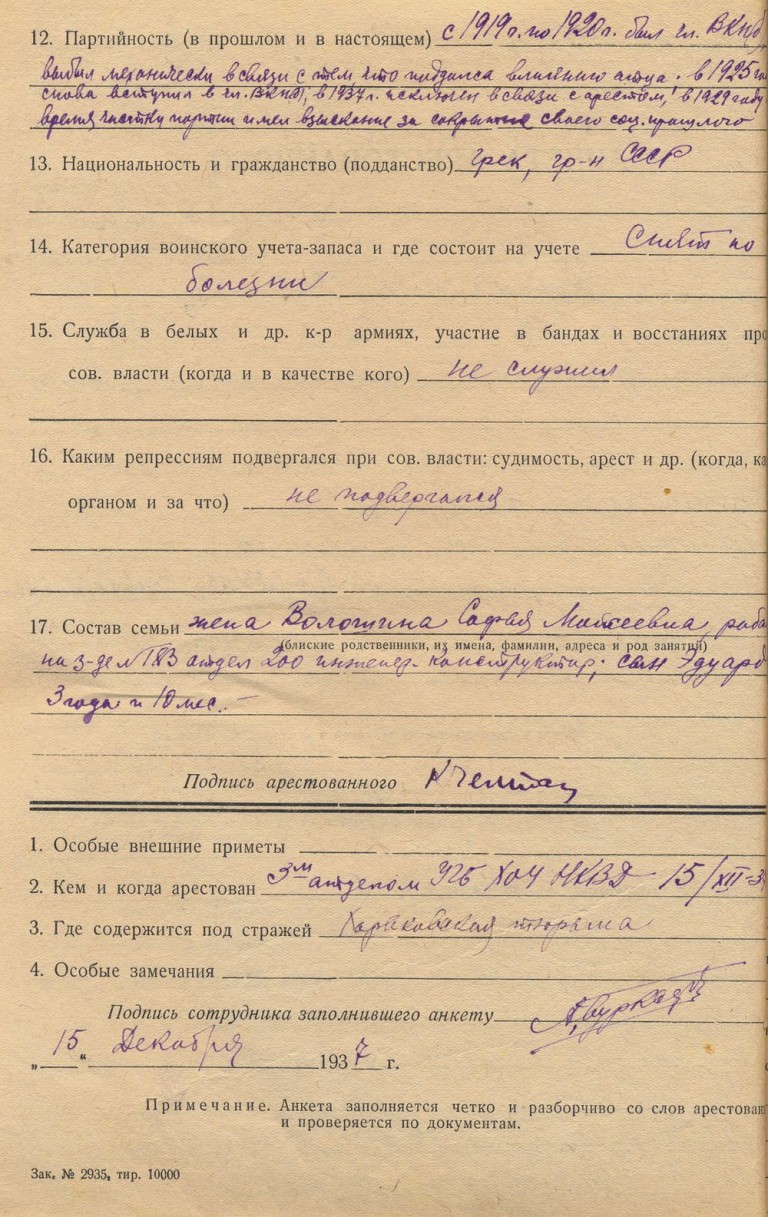 12. Партийность (в прошлом и в настоящем) с 1919 г. по 1920 г. был чл. ВКПб,
выбыл механически в связи с тем, что поддался влиянию отца. в 1925 го
снова вступил в чл. ВКПб, в 1937 г. исключен в связи с арестом, в 1929 году
время чистки партии имел взыскание за сокрытие своего соц. прошлого
13. Национальность и гражданство (подданство) грек, гр-н СССР
14. Категория воинского учета-запаса и где состоит на учете Снят по
болезни
15. Служба в белых и др. к-р армиях, участие в бандах и восстаниях про
сов. власти (когда и в качестве кого) не служил
16. Каким репрессиям подвергался при сов. власти: судимость, арест и др. (когда, ка
органом и за что) не подвергался
17. Состав семьи жена Волошина Софья Моисеевна, рабо
(блиские родственники, их имена, фамилии, адреса и род занятий)
на з-де отдел 200 инженер-конструктор; сын Эдуард
3 года и 10 мес. —
Подпись арестованного К Челпан
1. Особые внешние приметы
2. Кем и когда арестован 3м отделом УГБ ХОУ НКВД 15/XII-3
3. Где содержится под стражей Харьковская тюрьма
4. Особые замечания
Подпись сотрудника заполнившего анкету
„15“ Декабря 1937 г.
Примечание. Анкета заполняется четко и разборчиво со слов арестован
и проверяется по документам.
Зак. № 2935, тир. 10000